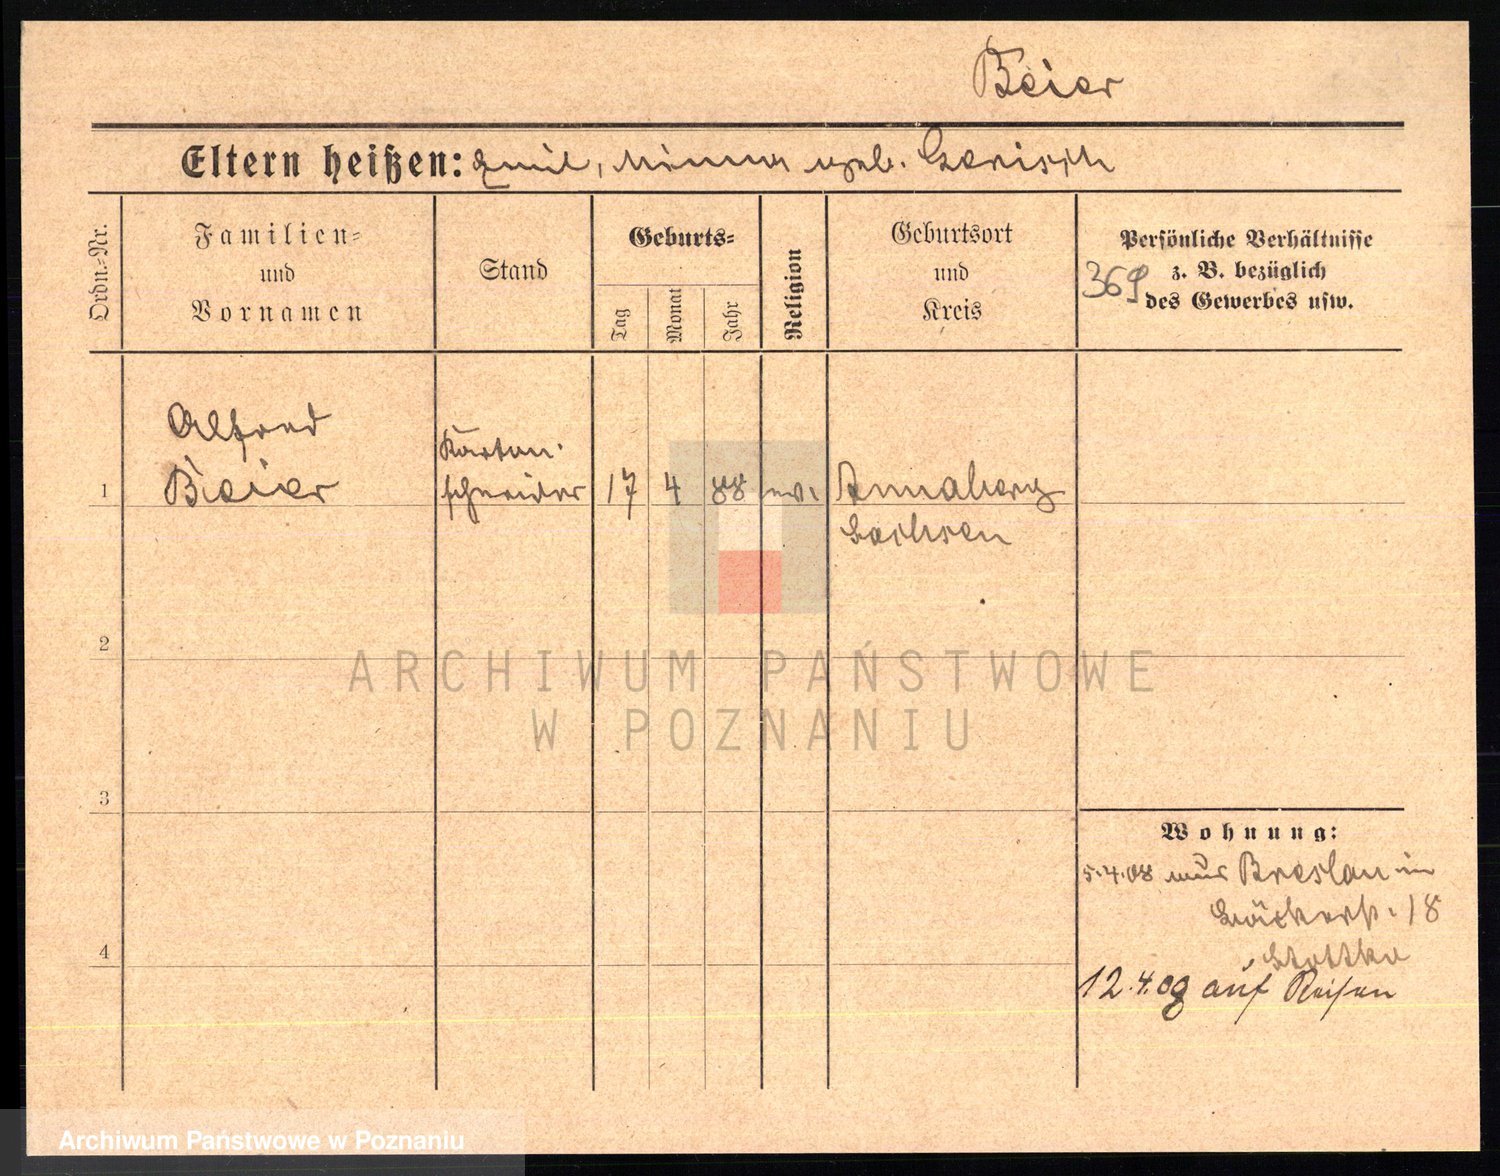 Beier
Eltern heißen: Emil, Minna geb.
Ordn.=Nr.
Familien=
und
Vornamen
Stand
Geburts=
Tag
Monat
Jahr
Religion
Geburtsort
und
Kreis
Persönliche Verhältnisse
z. B. bezüglich
des Gewerbes usw.
369
1
Alfred
Beier
Karton-
schneider
17
4
88
ev.
Annaberg
Sachsen
2
3
4
Wohnung:
5.4.08 aus Breslau in
18
12.4.08 auf Reisen
ARCHIWUM PAŃSTWOWE
W POZNANIU
Archiwum Państwowe w Poznaniu